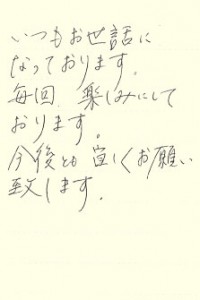 いつもお世話に
なっております。
毎回 楽しみにして
おります。
今後とも宜しくお願い
致します。